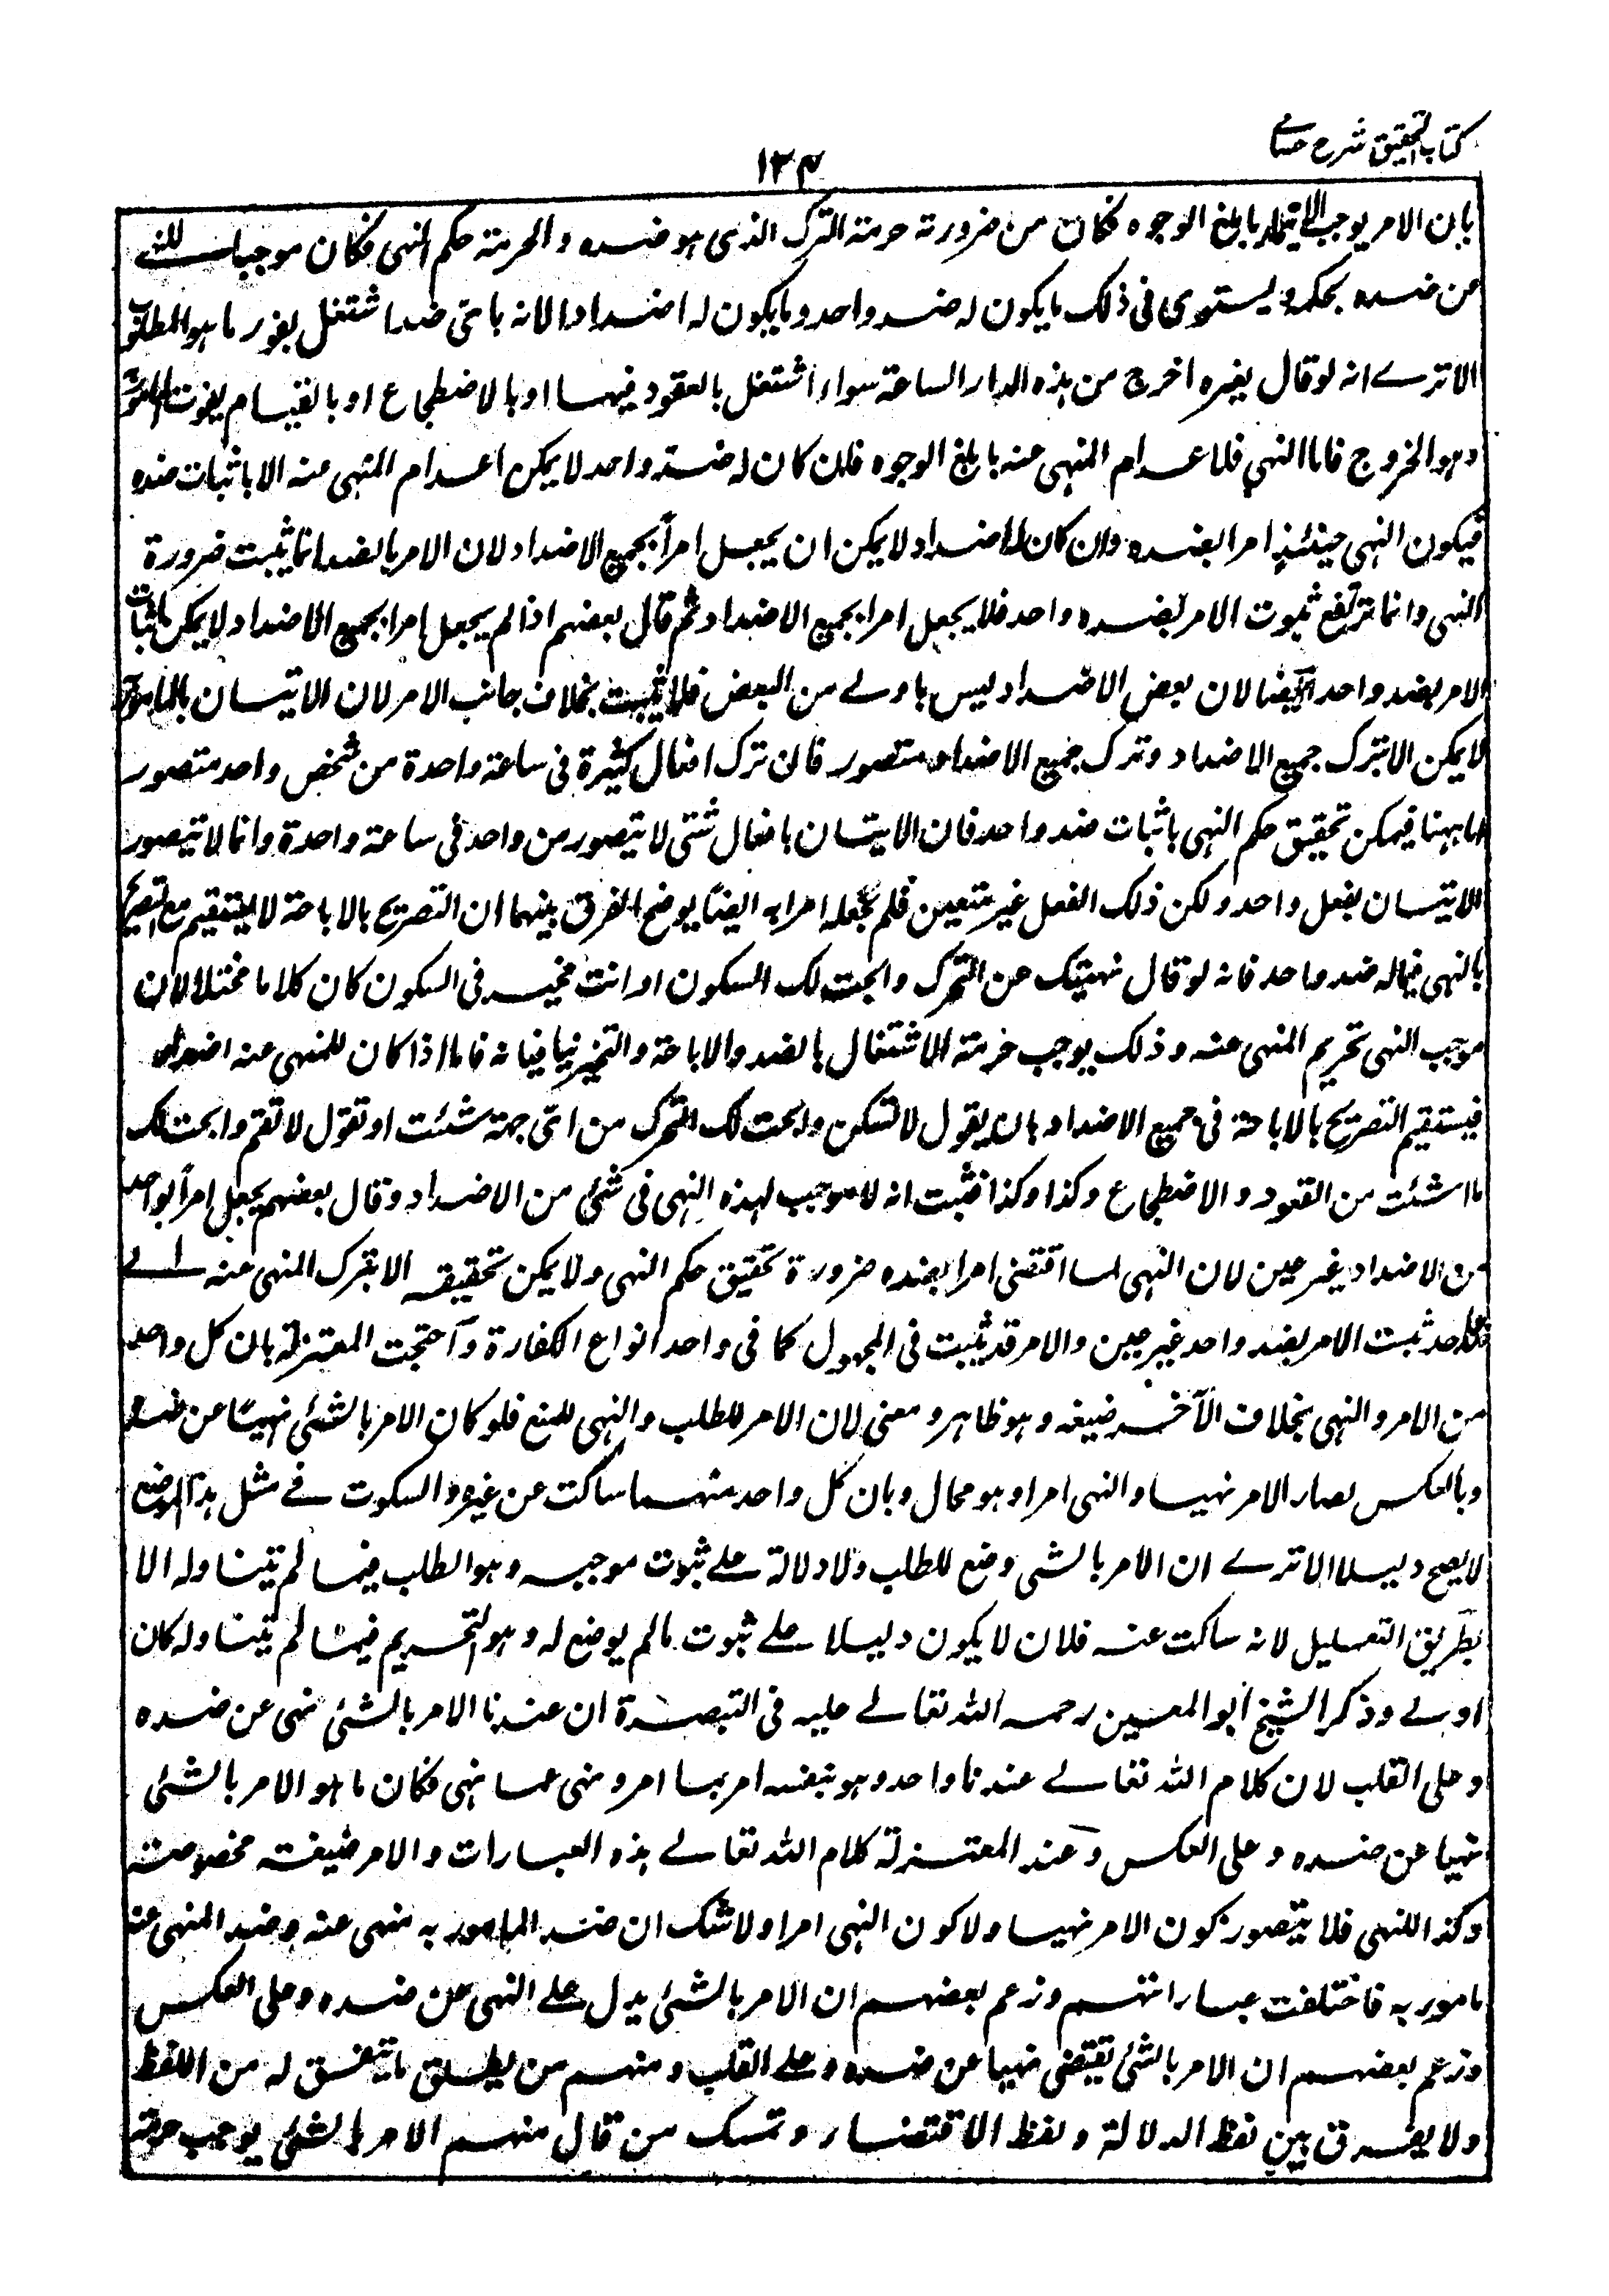 كتاب التحقيق شرح حسامي
١٣٤
بان الامر يوجب الايتمار بابلغ الوجوه فكان من ضرورته حرمة الترك الذى هو ضده والحرمة حكم النهى فكان موجبا للنهى
من ضده بحكمه ويستوى فى ذلك ما يكون له ضد واحد وما يكون له اضداد الا لانه باتى ضد اشتغل يفوت ما هو المطلوب
الا ترے انه لو قال لغيره اخرج من هذه الدار الساعة سواء اشتغل بالقعود فيها او بالاضطجاع او بالقيام يفوت المامور
وهو الخروج فاما النهى فلاعدام المنهى عنه بابلغ الوجوه فان كان له ضد واحد لا يمكن اعدام المنهى عنه الا باثبات ضده
فيكون النهى حينئذ امرا بضده وان كان له اضداد لا يمكن ان يجعل امراً بجميع الاضداد لان الامر بالضد انما يثبت ضرورة
النهى وانما ترتفع ثبوت الامر بضده واحد فلا يجعل امرا بجميع الاضداد ثم قال بعضهم اذا لم يجعل امرا بجميع الاضداد لا يمكن اثبات
الامر بضد واحد ايضا لان بعض الاضداد ليس باولے من البعض فلا يثبت بخلاف جانب الامر لان الاتيان بالمامور
لا يمكن الا بترك جميع الاضداد وترك جميع الاضداد متصور فان ترك افعال كثيرة فى ساعة واحدة من شخص واحد متصور
اما ههنا فيمكن تحقيق حكم النهى باثبات ضد واحد فان الاتيان بافعال شتى لا يتصور من واحد فى ساعة واحدة وانما لا يتصور
الاتيان بفعل واحد ولكن ذلك الفعل غير متعين فلم نجعله امرا به ايضا يوضح الفرق بينهما ان التصريح بالاباحة لا يستقيم مع التصريح
بالنهى فيما له ضد واحد فانه لو قال نهيتك عن التحرك وابحت لك السكون او انت مخير فى السكون كان كلاما مختلا لان
موجب النهى تحريم المنهى عنه وذلك يوجب حرمة الاشتغال بالضد والاباحة والتخيير ينافيانه فاما اذا كان للمنهى عنه اضداد
فيستقيم التصريح بالاباحة فى جميع الاضداد بان يقول لا تسكن وابحت لك التحرك من اتى جهة شئت او تقول لا تقم وابحت لك
ما شئت من القعود والاضطجاع وكذا وكذا فثبت انه لا موجب لهذه النهى فى شئ من الاضداد وقال بعضهم يجعل امراً بواحد
من الاضداد غير عين لان النهى لما اقتضى امرا بضده ضرورة تحقيق حكم النهى ولا يمكن تحقيقه الا بترك المنهى عنه الے
ضد واحد ثبت الامر بضد واحد غير عين والامر قد يثبت فى المجهول كما فى واحد انواع الكفارة وآحتجت المعتزلة بان كل واحد
من الامر والنهى بخلاف الآخر صيغة وهو ظاهر ومعنى لان الامر للطلب والنهى للمنع فلو كان الامر بالشئ نهيًا عن ضده
وبالعكس لصار الامر نهيا والنهى امرا وهو محال وبان كل واحد منهما ساكت عن غيره والسكوت فے مثل هذا الموضع
لا يصح دليلا الا ترے ان الامر بالشى وضع للطلب ولا دلالة علے ثبوت موجبه وهو الطلب فيما لم يتناوله الا
بطريق التعليل لانه ساكت عنه فلان لا يكون دليلا علے ثبوت ما لم يوضع له وهو التحريم فيما لم يتناوله كان
اولے وذكر الشيخ ابو المعين رحمه الله تعالے عليه فى التبصرة ان عندنا الامر بالشئ نهى عن ضده
وعلى القلب لان كلام الله تعالے عندنا واحد وهو بنفسه امر بما امر ونهى عما نهى فكان ما هو الامر بالشئ
نهيا عن ضده وعلى العكس وَعند المعتزلة كلام الله تعالے هذه العبارات والامر صيغة مخصوصة
وكذا للنهى فلا يتصور كون الامر نهيا ولا كون النهى امرا ولا شك ان ضد المامور به منهى عنه وضد المنهى عنه
مامور به فاختلفت عباراتهم وزعم بعضهم ان الامر بالشئ يدل علے النهى عن ضده وعلى العكس
وزعم بعضهم ان الامر بالشئ يقتضى نهيا عن ضده وعلے القلب ومنهم من يطلق ما يتفق له من اللفظ
ولا يفرق بين لفظ الدلالة ولفظ الاقتضاء وتمسك من قال منهم الامر بالشئ يوجب حرمة